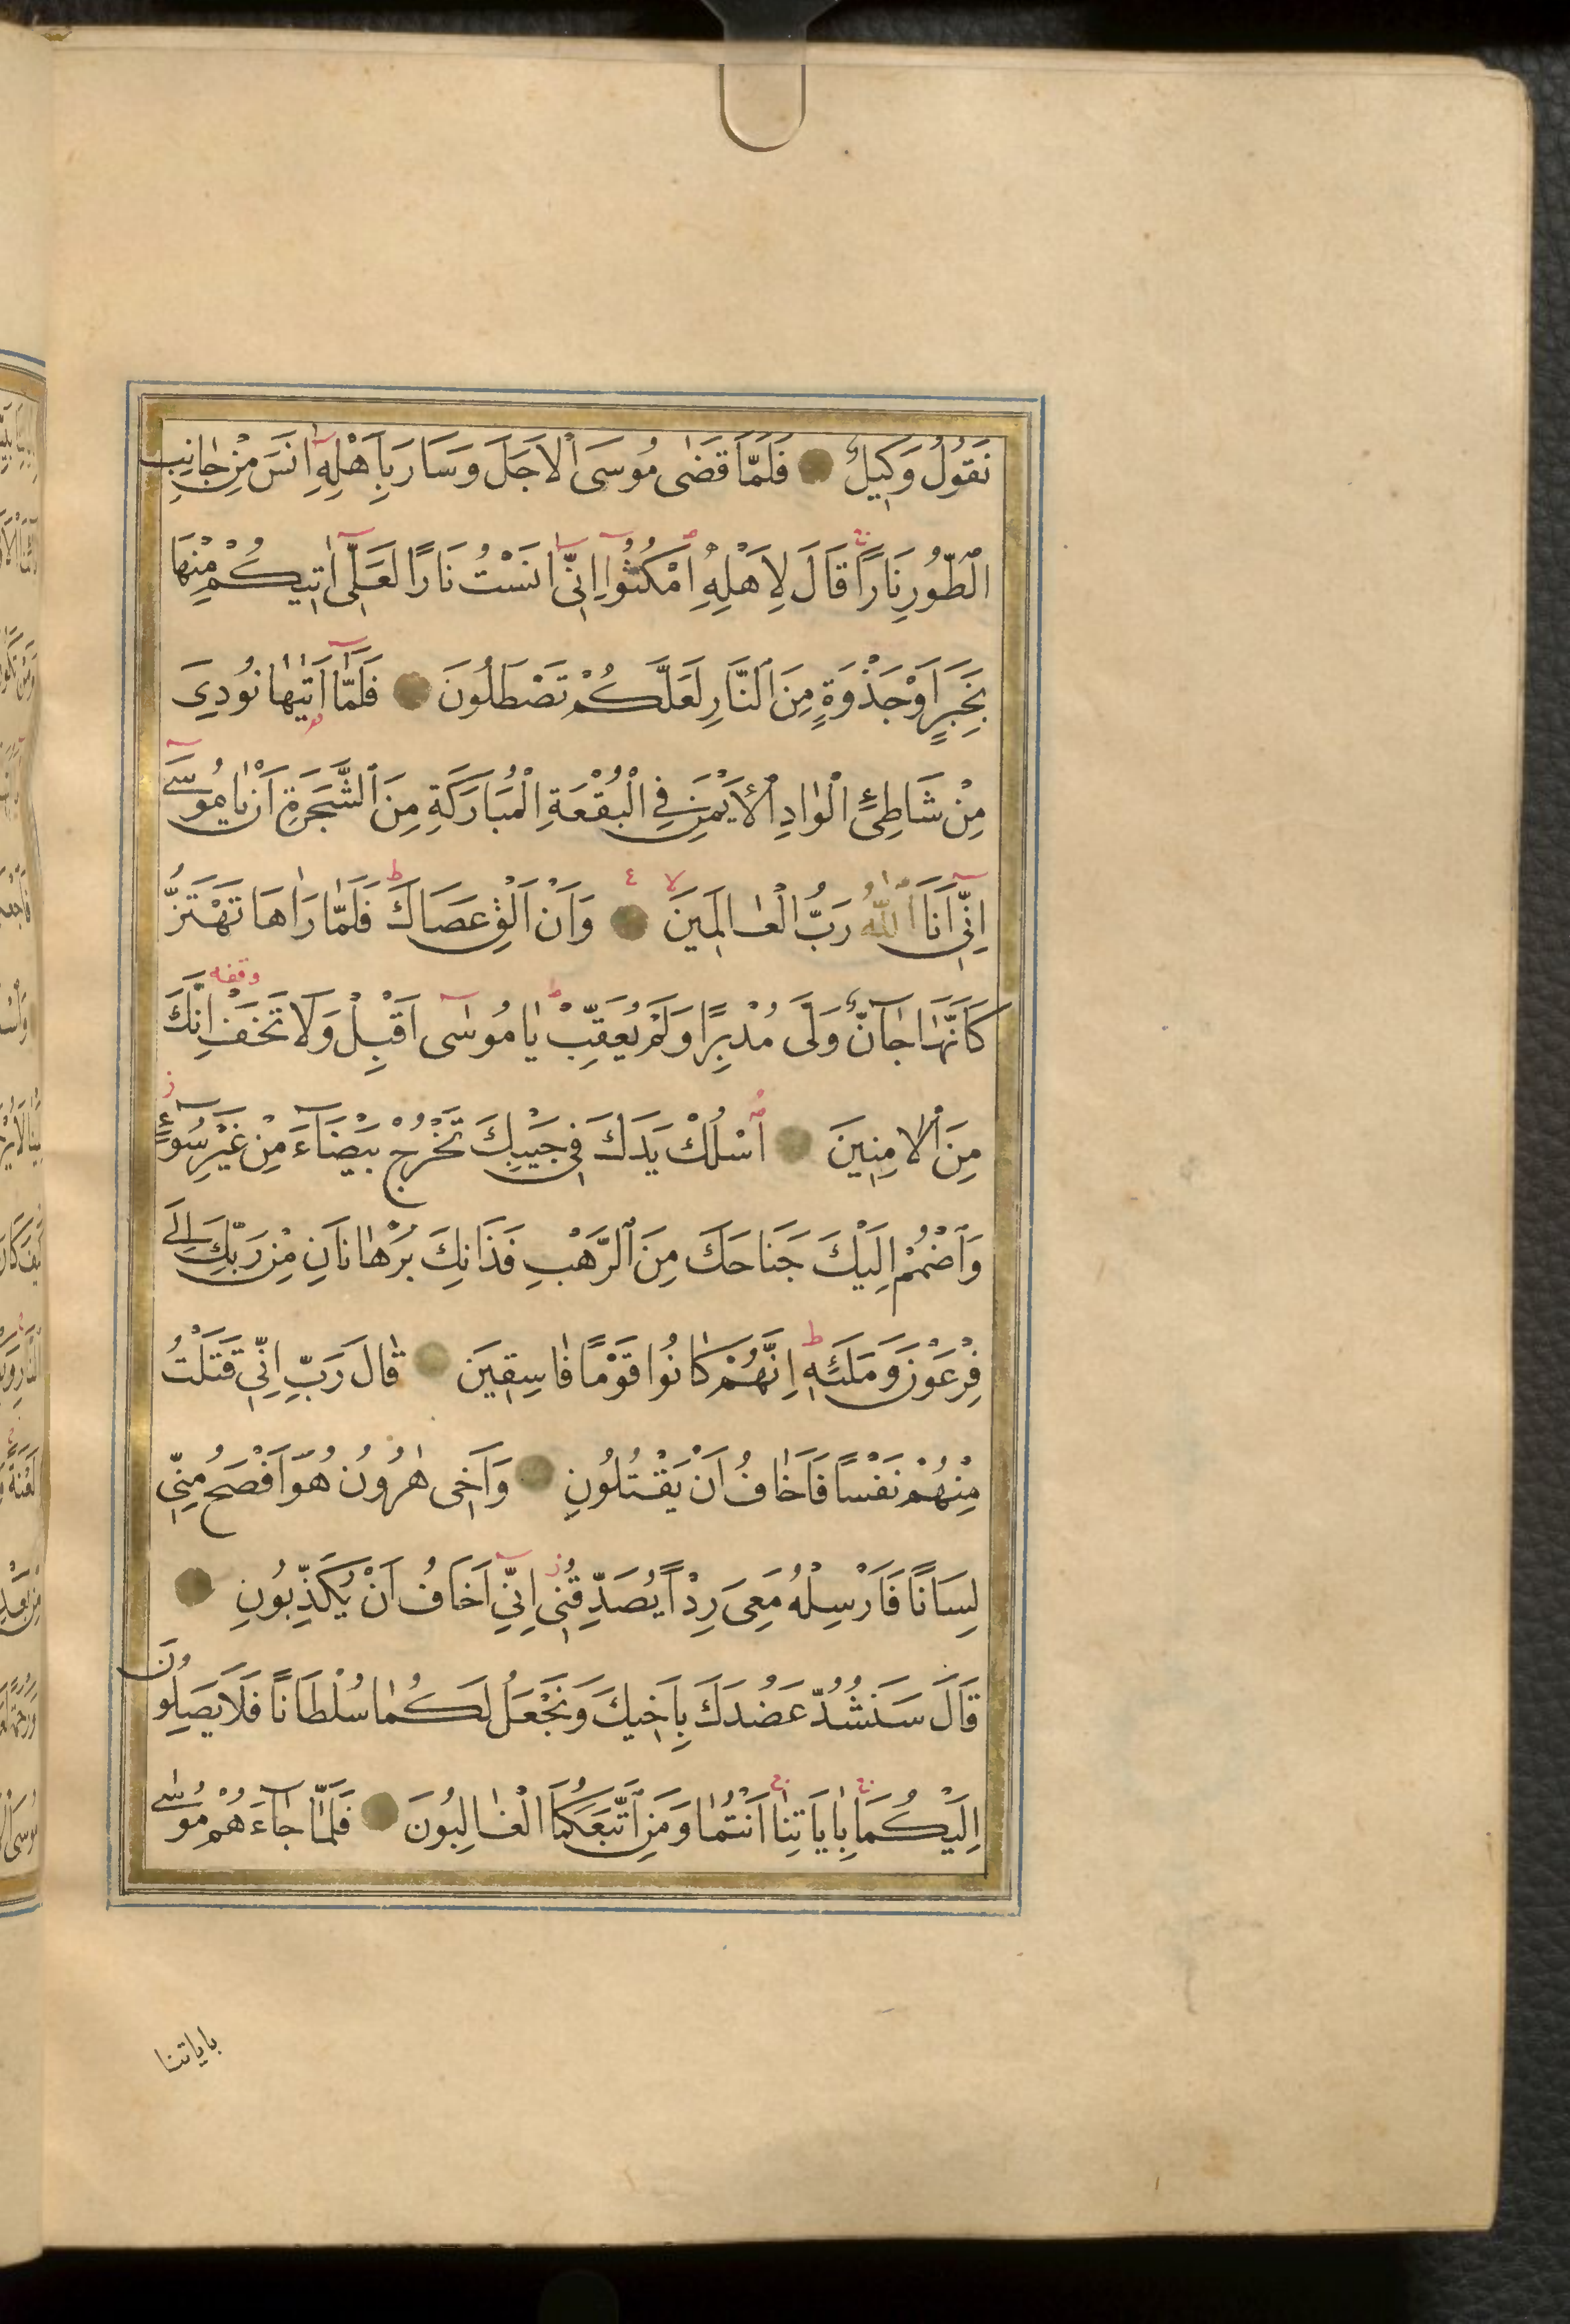 نَقُولُ وَكِيلٌ فَلَمَّا قَضٰى مُوسَى الْاَجَلَ وَسَارَ بِاَهْلِهِ اٰنَسَ مِنْ جَانِبِ
الطُّورِ نَارًا قَالَ لِاَهْلِهِ امْكُثُوا اِنِّى اٰنَسْتُ نَارًا لَعَلِّى اٰتِيكُمْ مِنْهَا
بِخَبَرٍ اَوْ جَذْوَةٍ مِنَ النَّارِ لَعَلَّكُمْ تَصْطَلُونَ فَلَمَّا اَتٰيهَا نُودِىَ
مِنْ شَاطِئِ الْوَادِ الْاَيْمَنِ فِى الْبُقْعَةِ الْمُبَارَكَةِ مِنَ الشَّجَرَةِ اَنْ يَا مُوسٰى
اِنِّى اَنَا اللّٰهُ رَبُّ الْعَالَمِينَ وَاَنْ اَلْقِ عَصَاكَ فَلَمَّا رَاٰهَا تَهْتَزُّ
كَاَنَّهَا جَانٌّ وَلّٰى مُدْبِرًا وَلَمْ يُعَقِّبْ يَا مُوسٰى اَقْبِلْ وَلَا تَخَفْ اِنَّكَ
وقفه
مِنَ الْاٰمِنِينَ اُسْلُكْ يَدَكَ فِى جَيْبِكَ تَخْرُجْ بَيْضَاءَ مِنْ غَيْرِ سُوءٍ
وَاضْمُمْ اِلَيْكَ جَنَاحَكَ مِنَ الرَّهْبِ فَذَانِكَ بُرْهَانَانِ مِنْ رَبِّكَ اِلٰى
فِرْعَوْنَ وَمَلَئِهِ اِنَّهُمْ كَانُوا قَوْمًا فَاسِقِينَ قَالَ رَبِّ اِنِّى قَتَلْتُ
مِنْهُمْ نَفْسًا فَاَخَافُ اَنْ يَقْتُلُونِ وَاَخِى هٰرُونُ هُوَ اَفْصَحُ مِنِّى
لِسَانًا فَاَرْسِلْهُ مَعِىَ رِدْاً يُصَدِّقُنِى اِنِّى اَخَافُ اَنْ يُكَذِّبُونِ
قَالَ سَنَشُدُّ عَضُدَكَ بِاَخِيكَ وَنَجْعَلُ لَكُمَا سُلْطَانًا فَلَا يَصِلُونَ
اِلَيْكُمَا بِاٰيَاتِنَا اَنْتُمَا وَمَنِ اتَّبَعَكُمَا الْغَالِبُونَ فَلَمَّا جَاءَهُمْ مُوسٰى
باياتنا